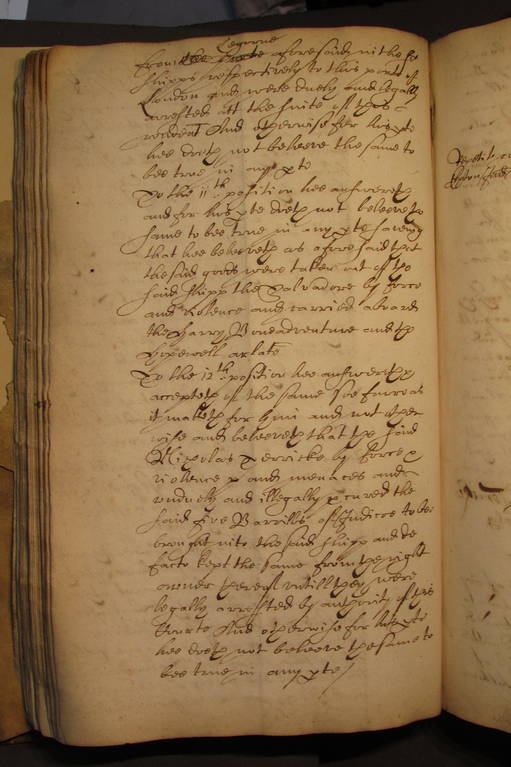 Legorne
from the aforesaid in the sd
shipps respectively to this porte of
London and were duely and legally
arrested att the suite of this
rendent And otherwise for his pte
hee doth not beleeve the same to
bee true in any pte
To the 11th position hee answereth
and for his pte doth not beleeve the
same to bee true in any pte saveing
that hee beleeveth as aforesaid that
the said goods were taken out of the
said shipp the Salvadore by force
and violence and carried aboard
the Harry Bonadventure and the
Hopewell arlate
To the 12th position hee answereth
accepteth of the same soe farre as
it maketh for him and not other
wise and beleeveth that the said
Nicholas by force
violence and menaces and
unduely and illegally pcured the
said five Barrills of Indicoe to bee
brought into the said shipp and de
facto kept the same from the right
owner thereof untill they were
legally arrested by authority of this
Courte And otherwise for his pte
hee doth not beleeve the same to
bee true in any pte